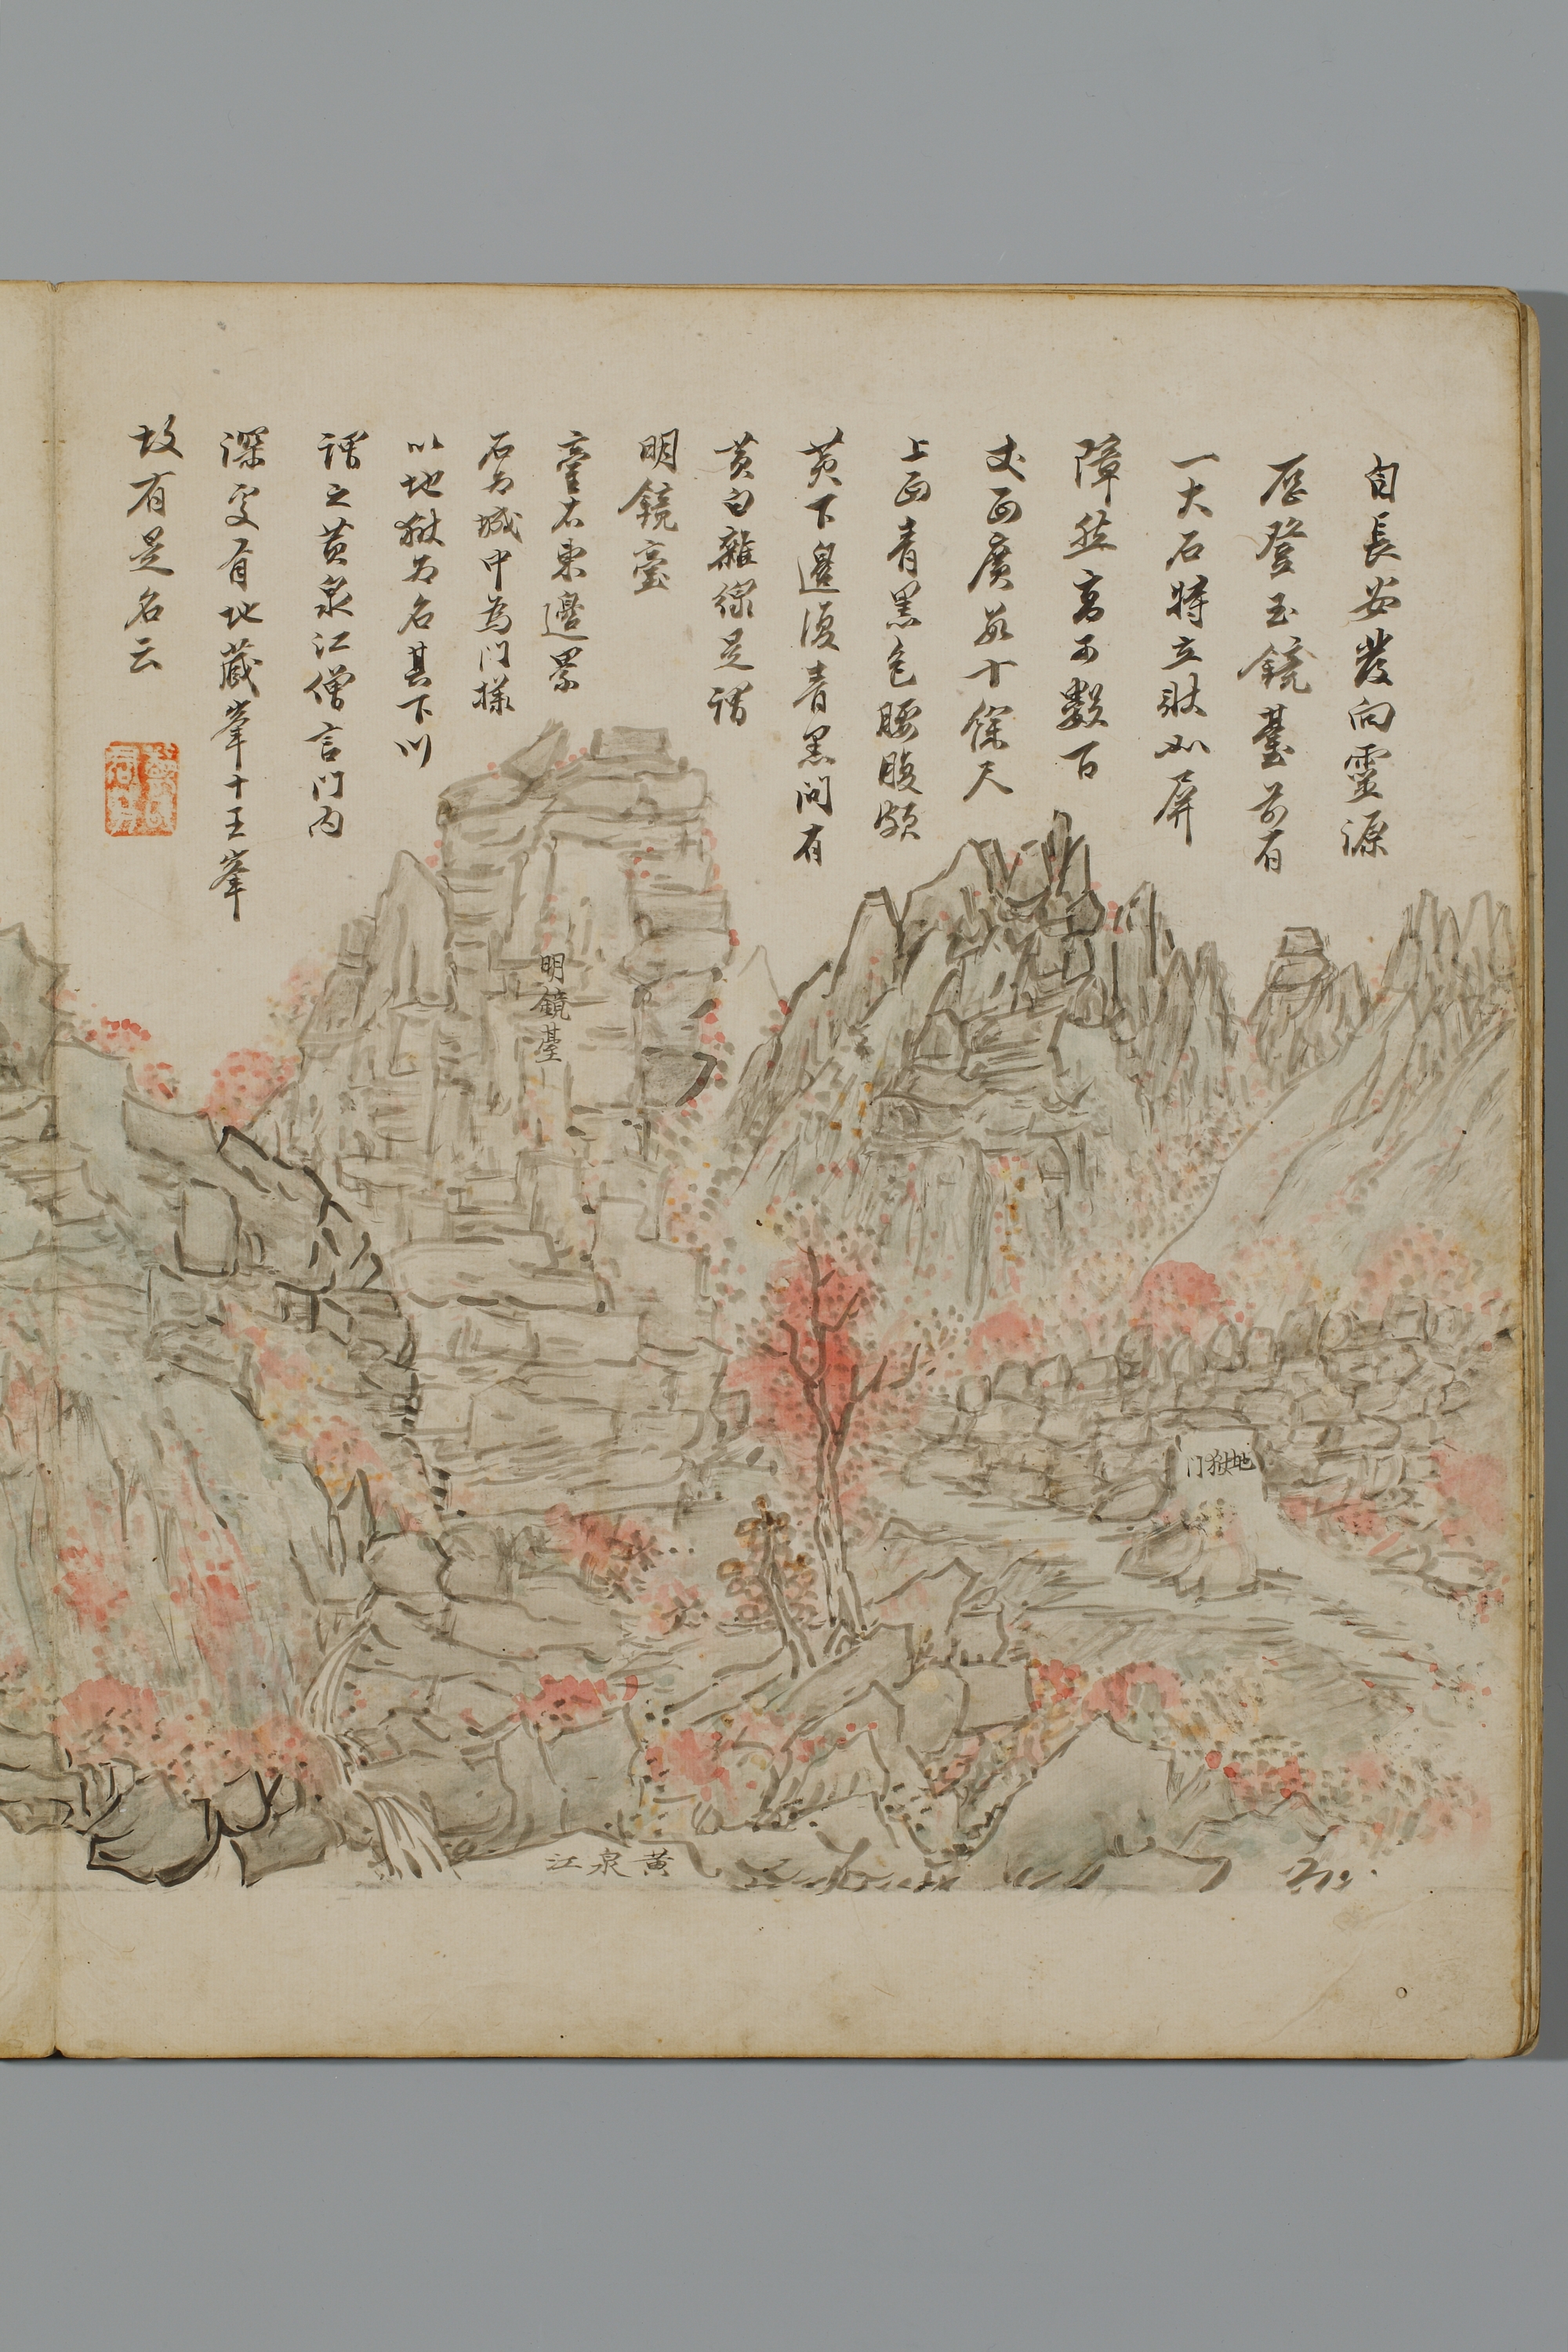 自長安發向靈源
歷登玉鏡臺前有
一大石特立狀如屏
障然高可數百
丈面廣数十保尺
上面青黑色腰腹頗
黄下邊復青黑間有
黄白雜綵是謂
明鏡臺
臺右東邊累
石为城中為门樣
以地獄为名其下川
謂之黄泉江僧言门内
深处有地藏峯十王峯
故有是名云
明鏡臺
地獄门
黄泉江